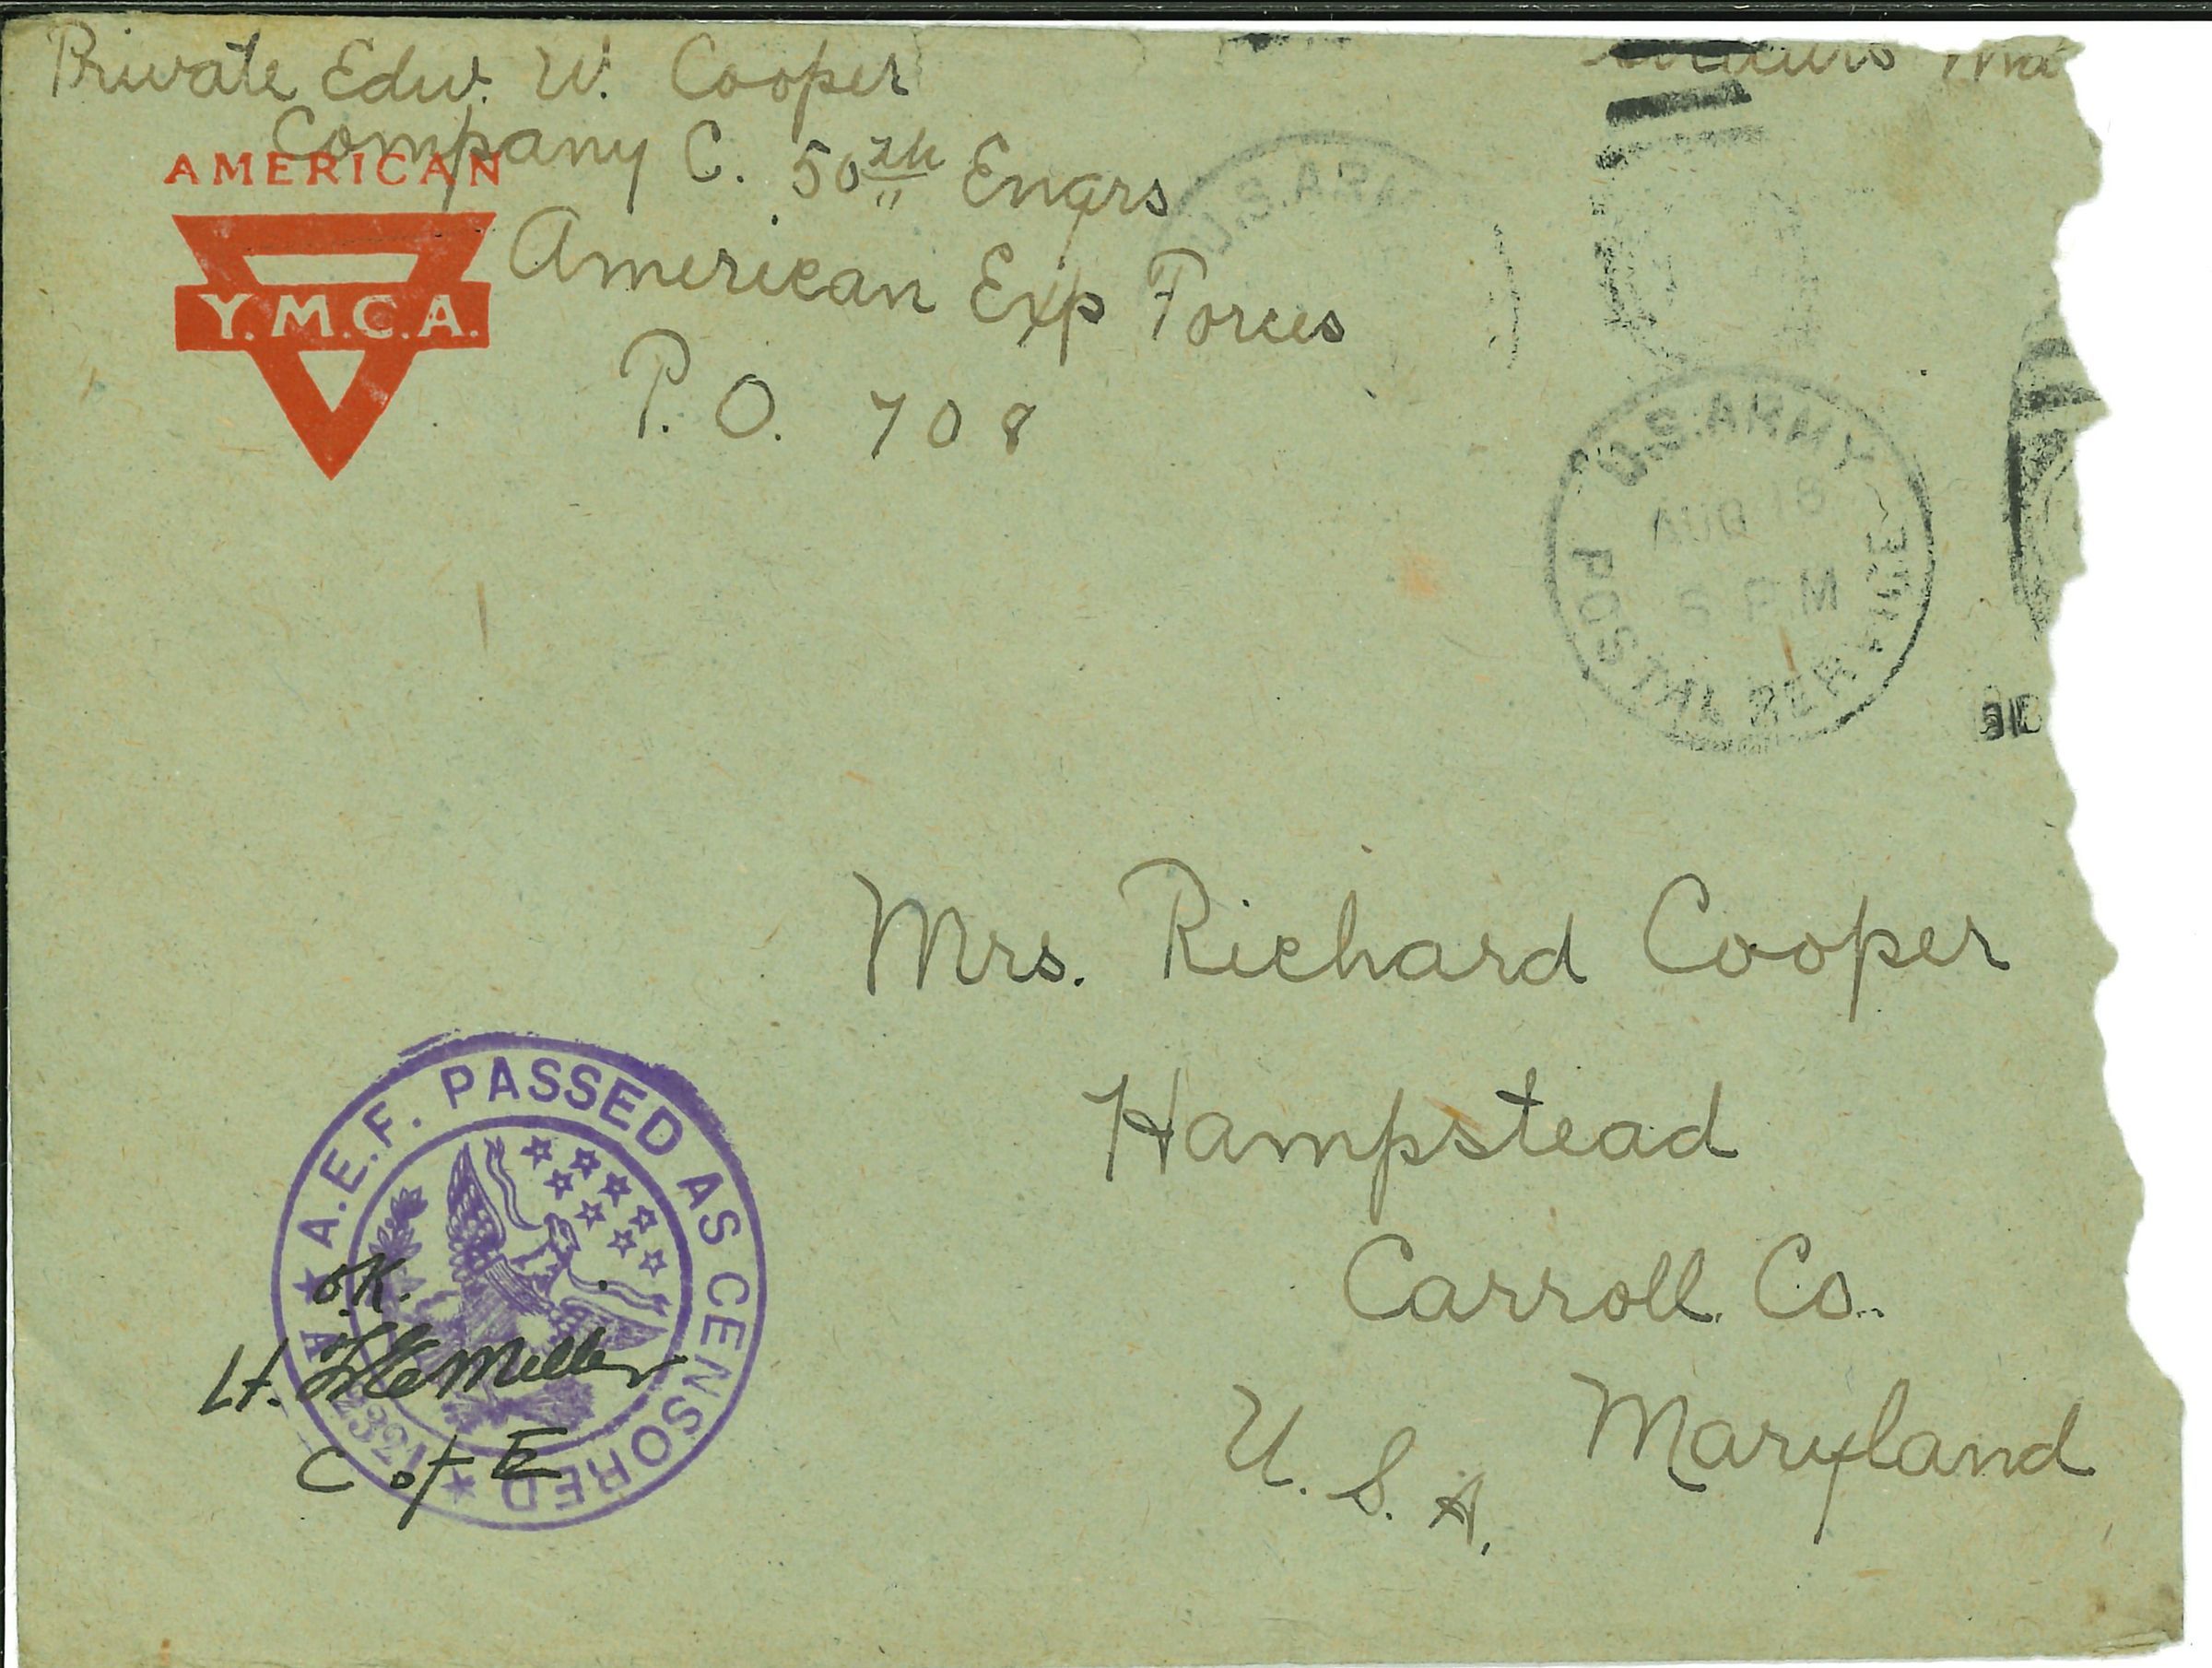 Private Edw. W. Cooper
Company C. 50th Engrs
American Exp Forces
P. O. 708
AMERICAN
Y.M.C.A.
U.S. ARM
U.S. ARMY
AUG 18
5 P.M
POSTAL SERVICE
Mrs. Richard Cooper
Hampstead
Carroll Co.
Maryland
U. S. A.
A.E.F. PASSED AS CENSORED
O.K.
Lt. Miller
C of E